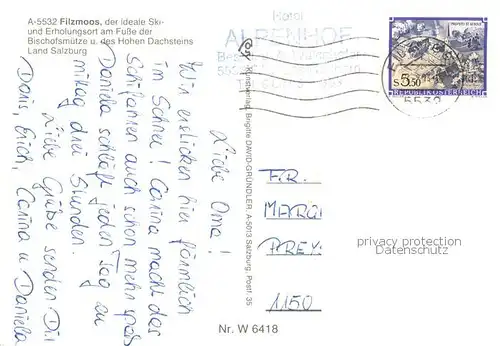 A-5532 Filzmoos, der ideale Ski-
und Erholungsort am Fuße der
Bischofsmütze u. des Hohen Dachsteins
Land Salzburg
Liebe Oma!
Wir ersticken hier förmlich
im Schnee! Carina macht das
Schifahren auch schon mehr Spaß
Daniela schläft jeden Tag an
mittag drei Stunden.
Liebe Grüße senden Dir
Dani, Erich, Carina u Daniela
Kunstverlag Brigitte DAVID-GRÜNDLER, A-5013 Salzburg, Postf. 35
Hotel
ALPENHOF
S 5.50
REPUBLIK ÖSTERREICH
5532
FR.
1150
privacy protection
Datenschutz
Nr. W 6418